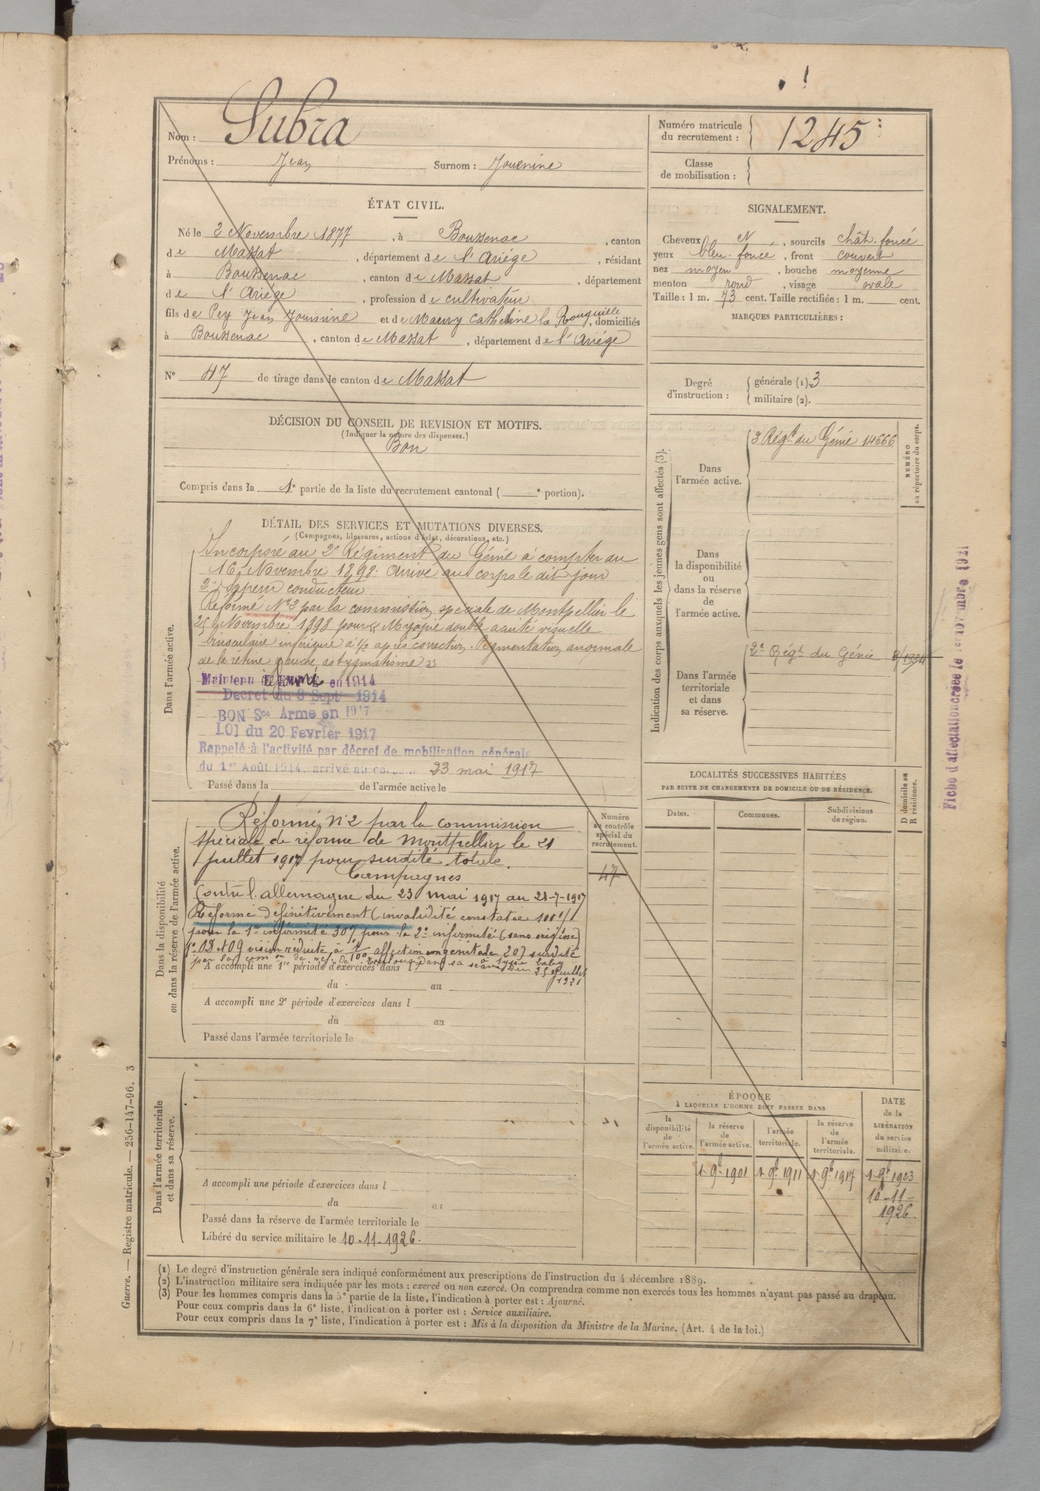 Nom : Subra
Prénoms : Jean Surnom : Jouenine
Numéro matricule du recrutement : 1245
Classe de mobilisation :
ÉTAT CIVIL.
Né le 2 Novembre 1877, à Boussenac, canton
de Massat, département de l'Ariège, résidant
à Boussenac, canton de Massat, département
de l'Ariège, profession de cultivateur
fils de Pey Jean Jouenine et de Maury Catherine la Rouquille, domiciliés
à Boussenac, canton de Massat, département de l'Ariége
N° 47 de tirage dans le canton de Massat
SIGNALEMENT.
Cheveux N, sourcils chât. foncé
yeux bleu foncé, front couvert
nez moyen, bouche moyenne
menton rond, visage ovale
Taille : 1 m. 73 cent. Taille rectifiée : 1 m. cent.
MARQUES PARTICULIÈRES :
Degré d'instruction : générale (1). 3
militaire (2).
DÉCISION DU CONSEIL DE REVISION ET MOTIFS.
(Indiquer la nature des dispenses.)
Bon
Compris dans la 1e partie de la liste du recrutement cantonal ( e portion).
Indication des corps auxquels les jeunes gens sont affectés (3).
Dans l'armée active.
2 Régt du Génie 14666
NUMÉRO au répertoire du corps.
Dans la disponibilité ou dans la réserve de l'armée active.
Dans l'armée territoriale et dans sa réserve.
2e Régt du Génie
DÉTAIL DES SERVICES ET MUTATIONS DIVERSES.
(Campagnes, blessures, actions d'éclat, décorations, etc.)
Dans l'armée active.
Incorporé au 2e Régiment du Génie à compter du
16 Novembre 1898. Arrivé au corps le dit jour
2e sapeur conducteur
Réformé N° 2 par la commission spéciale de Montpellier le
25 Novembre 1898 pour Myopie double acuité visuelle
binoculaire inférieure à après correction. Pigmentation anormale
de la rétine gauche, astygmatisme
Maintenu Réformé en 1914
Décret du 9 Sept 1914
BON Sce Armé en 1917
LOI du 20 Fevrier 1917
Rappelé à l'activité par décret de mobilisation générale
du 1er Août 1914, arrivé au corps 23 mai 1917
Passé dans la de l'armée active le
Dans la disponibilité ou dans la réserve de l'armée active.
Réformé n°2 par la commission
spéciale de réforme de Montpellier le 21
juillet 1917 pour surdité totale.
Campagnes
Contre l'allemagne du 23 mai 1917 au 21-7-1917
Réformé définitivement (invalidité constatée
pour la 1e infirmité 30% pour la 2e infirmité (sans origine)
vision réduite à affection congenitale 20) surdité
A accompli une 1re période d'exercices dans
juillet 1921
du au
A accompli une 2e période d'exercices dans l
du au
Passé dans l'armée territoriale le
Numéro au contrôle spécial du recrutement.
47
LOCALITÉS SUCCESSIVES HABITÉES
PAR SUITE DE CHANGEMENTS DE DOMICILE OU DE RÉSIDENCE.
Dates. Communes. Subdivisions de région. D domicile ou R résidence.
Fiche d'affectation créée le 1er 1921
Dans l'armée territoriale et dans sa réserve.
A accompli une période d'exercices dans l
du au
Passé dans la réserve de l'armée territoriale le
Libéré du service militaire le 10-11-1926.
ÉPOQUE
À LAQUELLE L'HOMME DOIT PASSER DANS
la disponibilité de l'armée active. la réserve de l'armée active. l'armée territoriale. la réserve de l'armée territoriale. DATE de la LIBÉRATION du service militaire.
1 9e 1901 1 9e 1911 1 9e 1917 1 9e 1923
10-11-
1926
(1) Le degré d'instruction générale sera indiqué conformément aux prescriptions de l'instruction du 4 décembre 1889.
(2) L'instruction militaire sera indiquée par les mots : exercé ou non exercé. On comprendra comme non exercés tous les hommes n'ayant pas passé au drapeau.
(3) Pour les hommes compris dans la 5e partie de la liste, l'indication à porter est : Ajourné.
Pour ceux compris dans la 6e liste, l'indication à porter est : Service auxiliaire.
Pour ceux compris dans la 7e liste, l'indication à porter est : Mis à la disposition du Ministre de la Marine. (Art. 4 de la loi.)
Guerre. — Registre matricule. — 256-147-96. 3